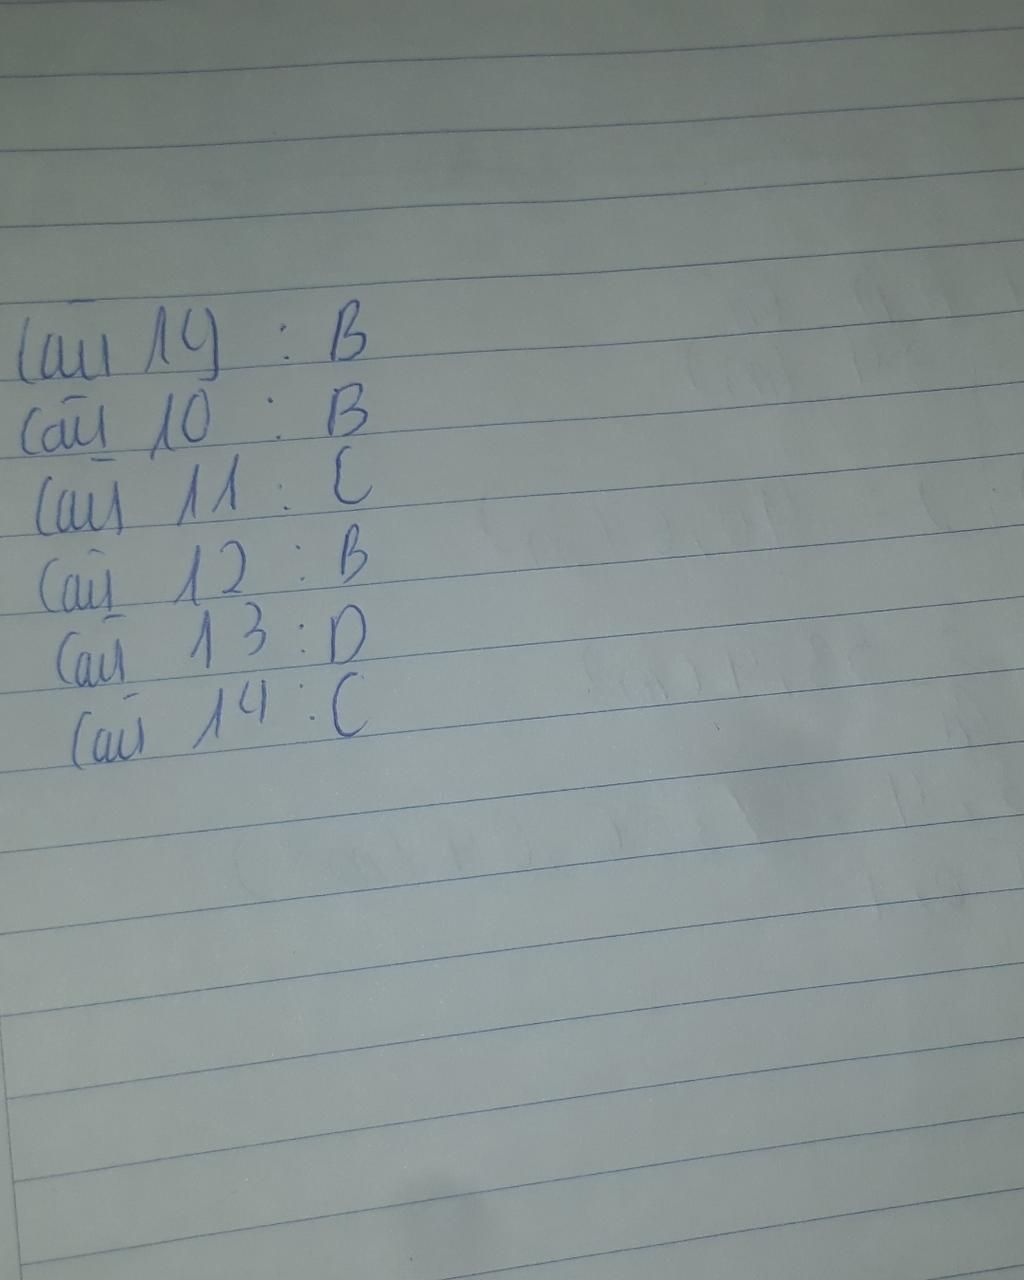 Câu 19 : B
Câu 10 : B
Câu 11 : C
Câu 12 : B
Câu 13 : D
Câu 14 : C